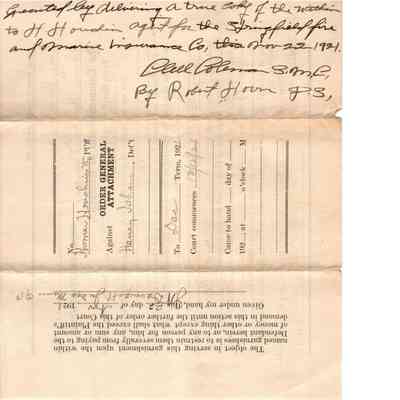 Executed by delivering a true copy of the within
to H Houchin agt for the Springfield fire
and marine Insurance Co, this Nov 22 1921.
Paul Coleman S.M.C,
By Robert Hoover D.S,
No.
Plf
ORDER GENERAL
ATTACHMENT
Against
Harry , Def't
To Dec Term, 192
Court commences
Came to hand day of
192 , at o'clock M
The object in serving this garnishment upon the within
named garnishees is to restrain them severally from paying to the
Defendant herein, or to any person for him, any sum or amount
of money or other thing except what shall exceed the Plaintiff's
demand in this action until the further order of this Court
Given under my hand, this 22 day of Nov 1921